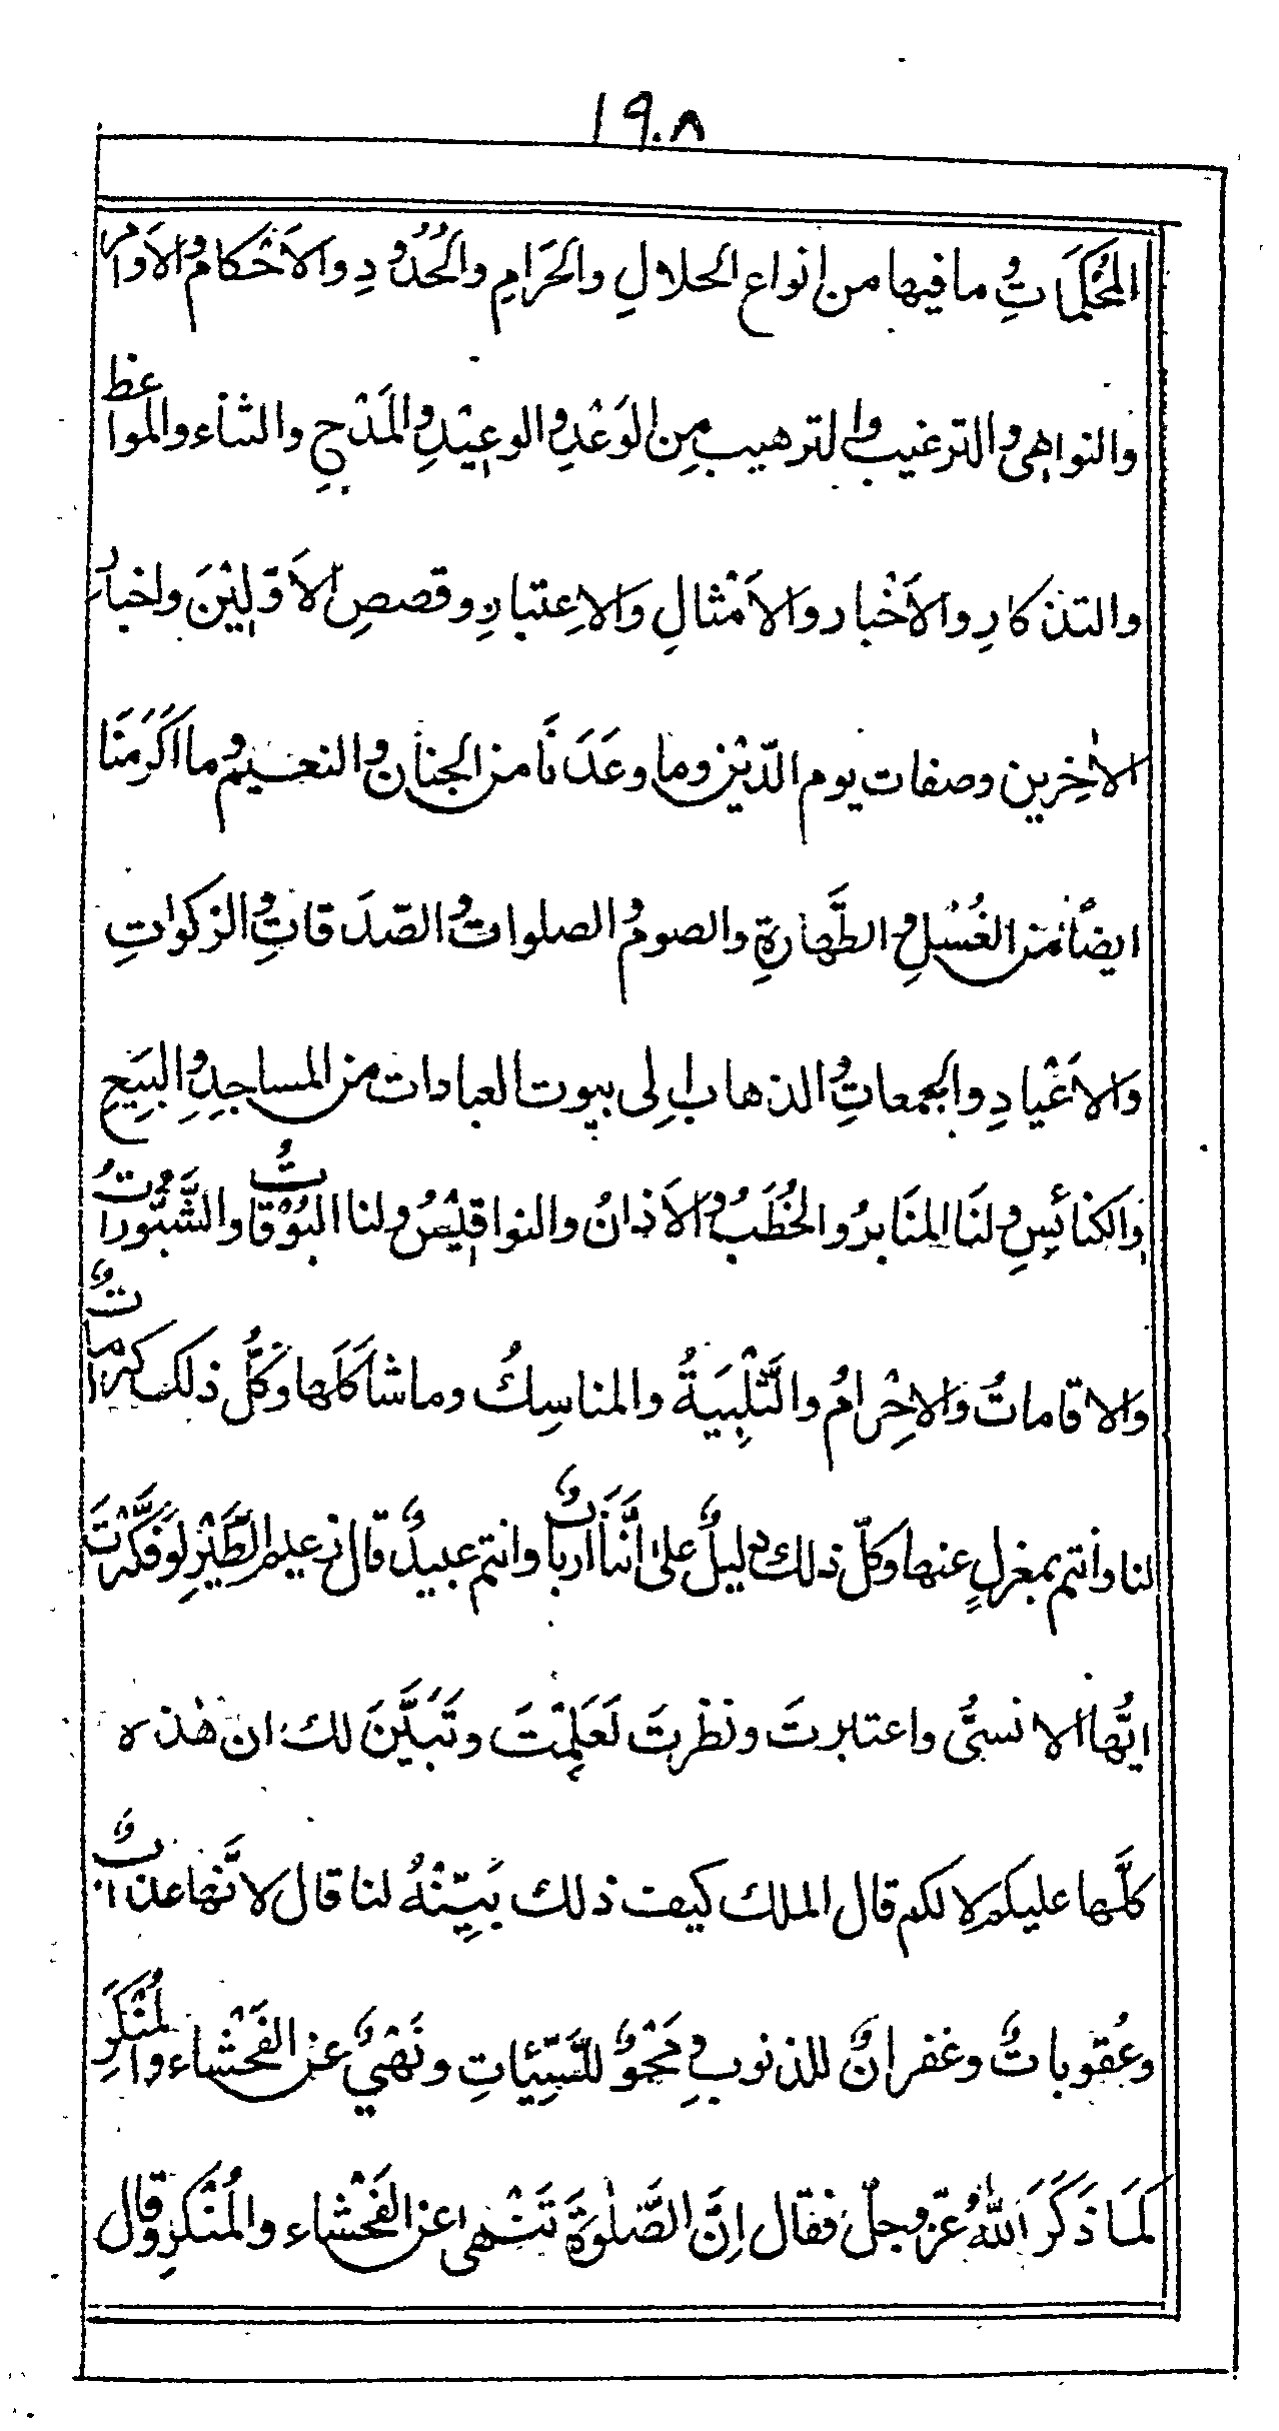 ١٩٠٨
المُحْكَمَاتِ وما فيها من انواع الحلالِ والحَرَامِ والحُدُودِ والاَحْكام والاَوامر
والنواهى والترغيب والترهيب مِن الوَعْدِ والوعِيْدِ والمَدْحِ والثناء والمواعظ
والتذكارِ والاَخْبار والاَمْثالِ والاِعتبارِ وقصصِ الاَوّلِيْنَ واخبار
الاٰخِرين وصفات يوم الدّيْن وما وعَدَنَا من الجنان والنعيم وما اَكْرَمَنَا
ايضًا من الغُسْلِ والطَّهارةِ والصوم والصلوات والصّدَقاتِ والزكواتِ
وَالاَعْيادِ والجمعاتِ والذهاب اِلى بيوت العبادات من المساجدِ والبِيَعِ
وَالكنائسِ ولنَا المنَابرُ والخُطَبُ والاَذانُ والنواقِيْسُ ولنا البُوْقاتُ والشَّبُّوراتُ
والاقاماتُ وَالاِحْرامُ والتَّلْبِيَةُ والمناسِكُ وما شاكَلَها وَكُلُّ ذلك كراماتٌ
لنا وانتم بمغزلٍ عنها وكلّ ذلك دليلٌ على اَنَّنَا اربابٌ وانتم عبيدٌ قال زعيم الطَّيْرِ لَوْفَكَّرْتَ
ايُّها الانسىُّ واعتبرتَ ونظرتَ لَعَلِمْتَ وتَبَيَّنَ لك ان هٰذه
كلَّها عليكم لا لكم قال الملك كيف ذلك بَيِّنْهُ لنا قال لانَّها عذابٌ
وعُقوباتٌ وغفرانٌ للذنوبِ ومَحْوٌ للسَّيِّئاتِ ونَهْيٌ عن الفَحْشاء والمُنْكَرِ
كَمَا ذَكَرَ اللّٰهُ عزّ وجلّ فقال اِنَّ الصَّلٰوةَ تَنْهى عن الفَحْشاء والمُنْكرِ وقال